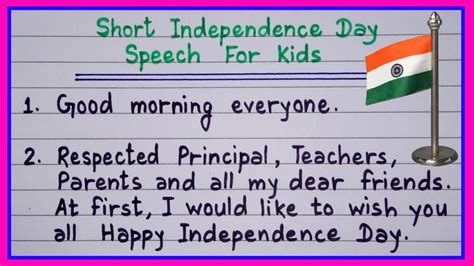 Short Independence Day
Speech For Kids
1. Good morning everyone.
2. Respected Principal, Teachers,
Parents and all my dear friends.
At first, I would like to wish you
all Happy Independence Day.